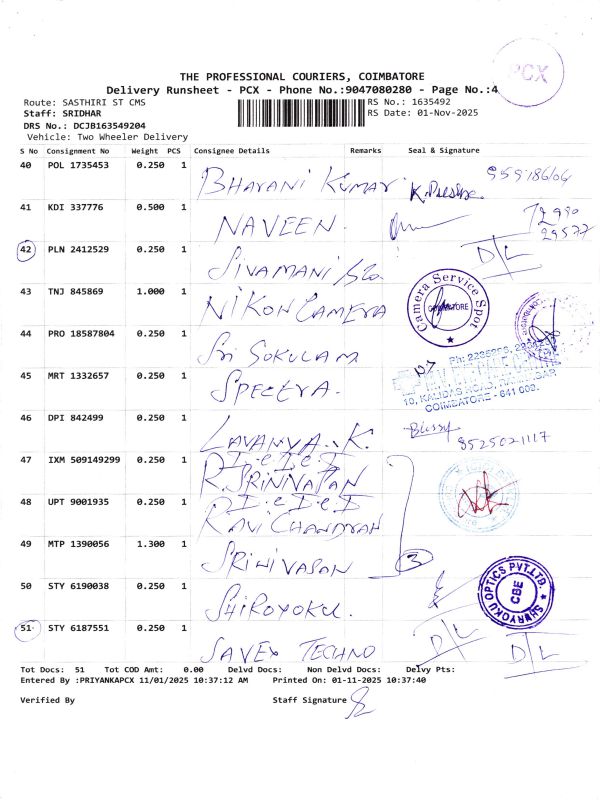 PCX
THE PROFESSIONAL COURIERS, COIMBATORE
Delivery Runsheet - PCX - Phone No.:9047080280 - Page No.:4
Route: SASTHIRI ST CMS
RS No.: 1635492
Staff: SRIDHAR
RS Date: 01-Nov-2025
DRS No.: DCJB163549204
Vehicle: Two Wheeler Delivery
S No Consignment No Weight PCS Consignee Details Remarks Seal & Signature
40 POL 1735453 0.250 1 BHAVANI KUMAR
41 KDI 337776 0.500 1 NAVEEN.
42 PLN 2412529 0.250 1 SIVAMANI D/L
43 TNJ 845869 1.000 1 NIKON CAMERA Camera Service Spot COIMBATORE
44 PRO 18587804 0.250 1 Sri GOKULAM
45 MRT 1332657 0.250 1 SPECTRA.
10, KALIDAS ROAD, RAMNAGAR
COIMBATORE - 641 009.
46 DPI 842499 0.250 1 LAVANYA. K. Blessy 9525021117
47 IXM 509149299 0.250 1 R. SRINIVASAN
48 UPT 9001935 0.250 1 RAVI CHANDRAN
49 MTP 1390056 1.300 1 SRINIVASAN 3
50 STY 6190038 0.250 1 SHIROYOKU. SHIRYOKU OPTICS PVT.LTD. CBE
51 STY 6187551 0.250 1 SAVEX TECHNO D/L D/L
Tot Docs: 51 Tot COD Amt: 0.00 Delvd Docs: Non Delvd Docs: Delvy Pts:
Entered By :PRIYANKAPCX 11/01/2025 10:37:12 AM Printed On: 01-11-2025 10:37:40
Verified By Staff Signature